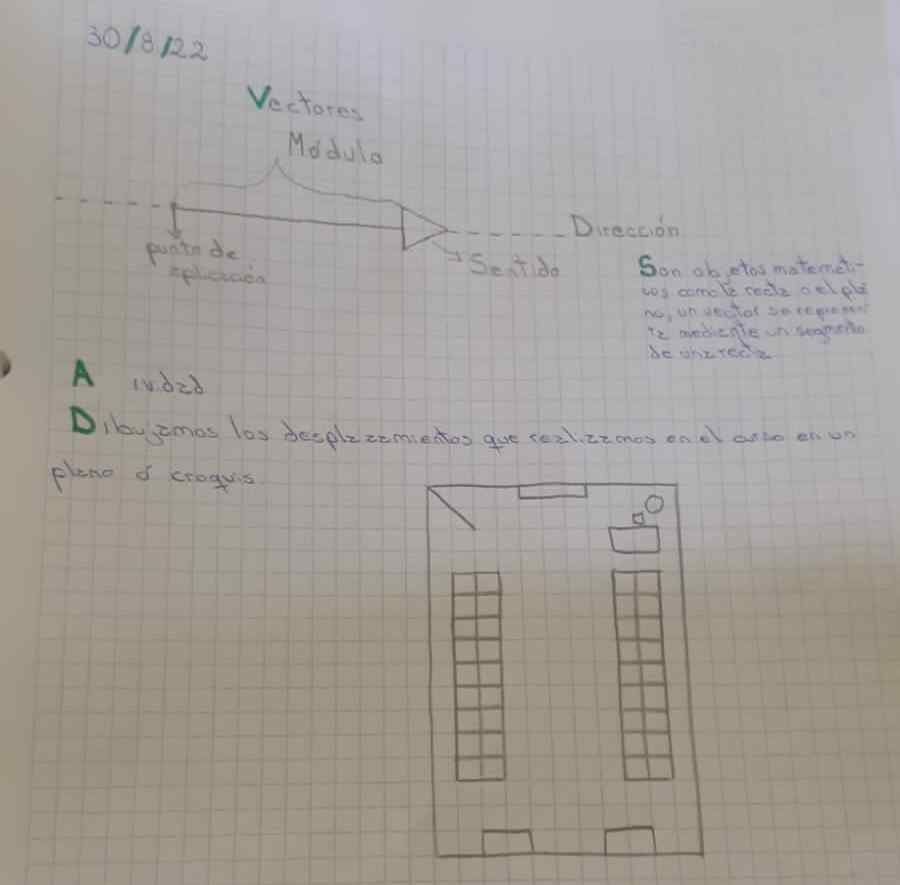 30/8/22
Vectores
Módulo
Dirección
punto de
aplicación
Sentido
Son objetos matemáti-
cos como la recta o el pla
no, un vector se represen
ta mediante un segmento
de una recta
A ividad
Dibujamos los desplazamientos que realizamos en el curso en un
plano ó croquis